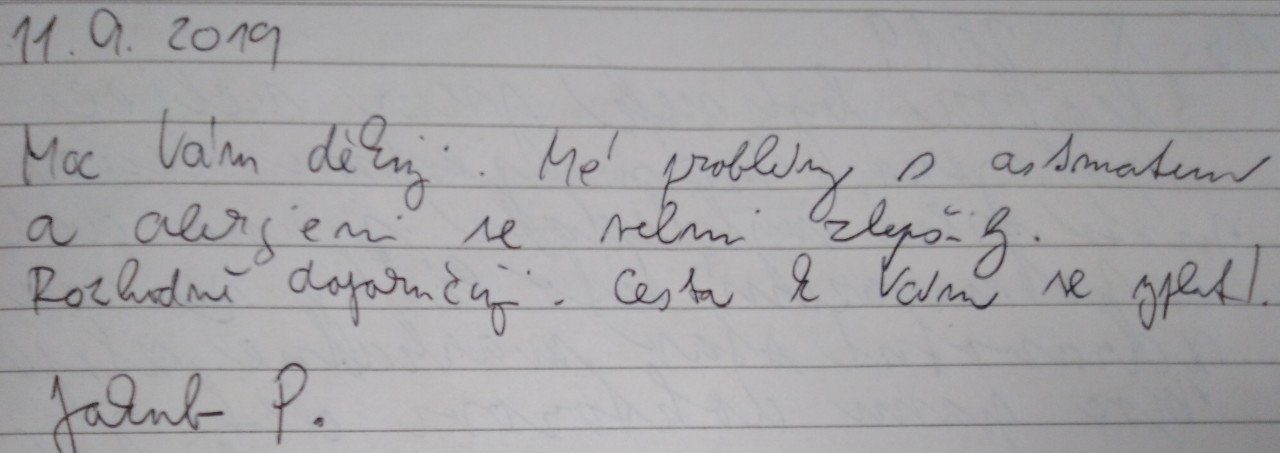 11. 9. 2019
Moc Vám děkuji. Mé problémy s astmatem
a alergiemi se velmi zlepšily.
Rozhodně doporučuji. Cesta k Vám se vyplatí.
Jakub P.